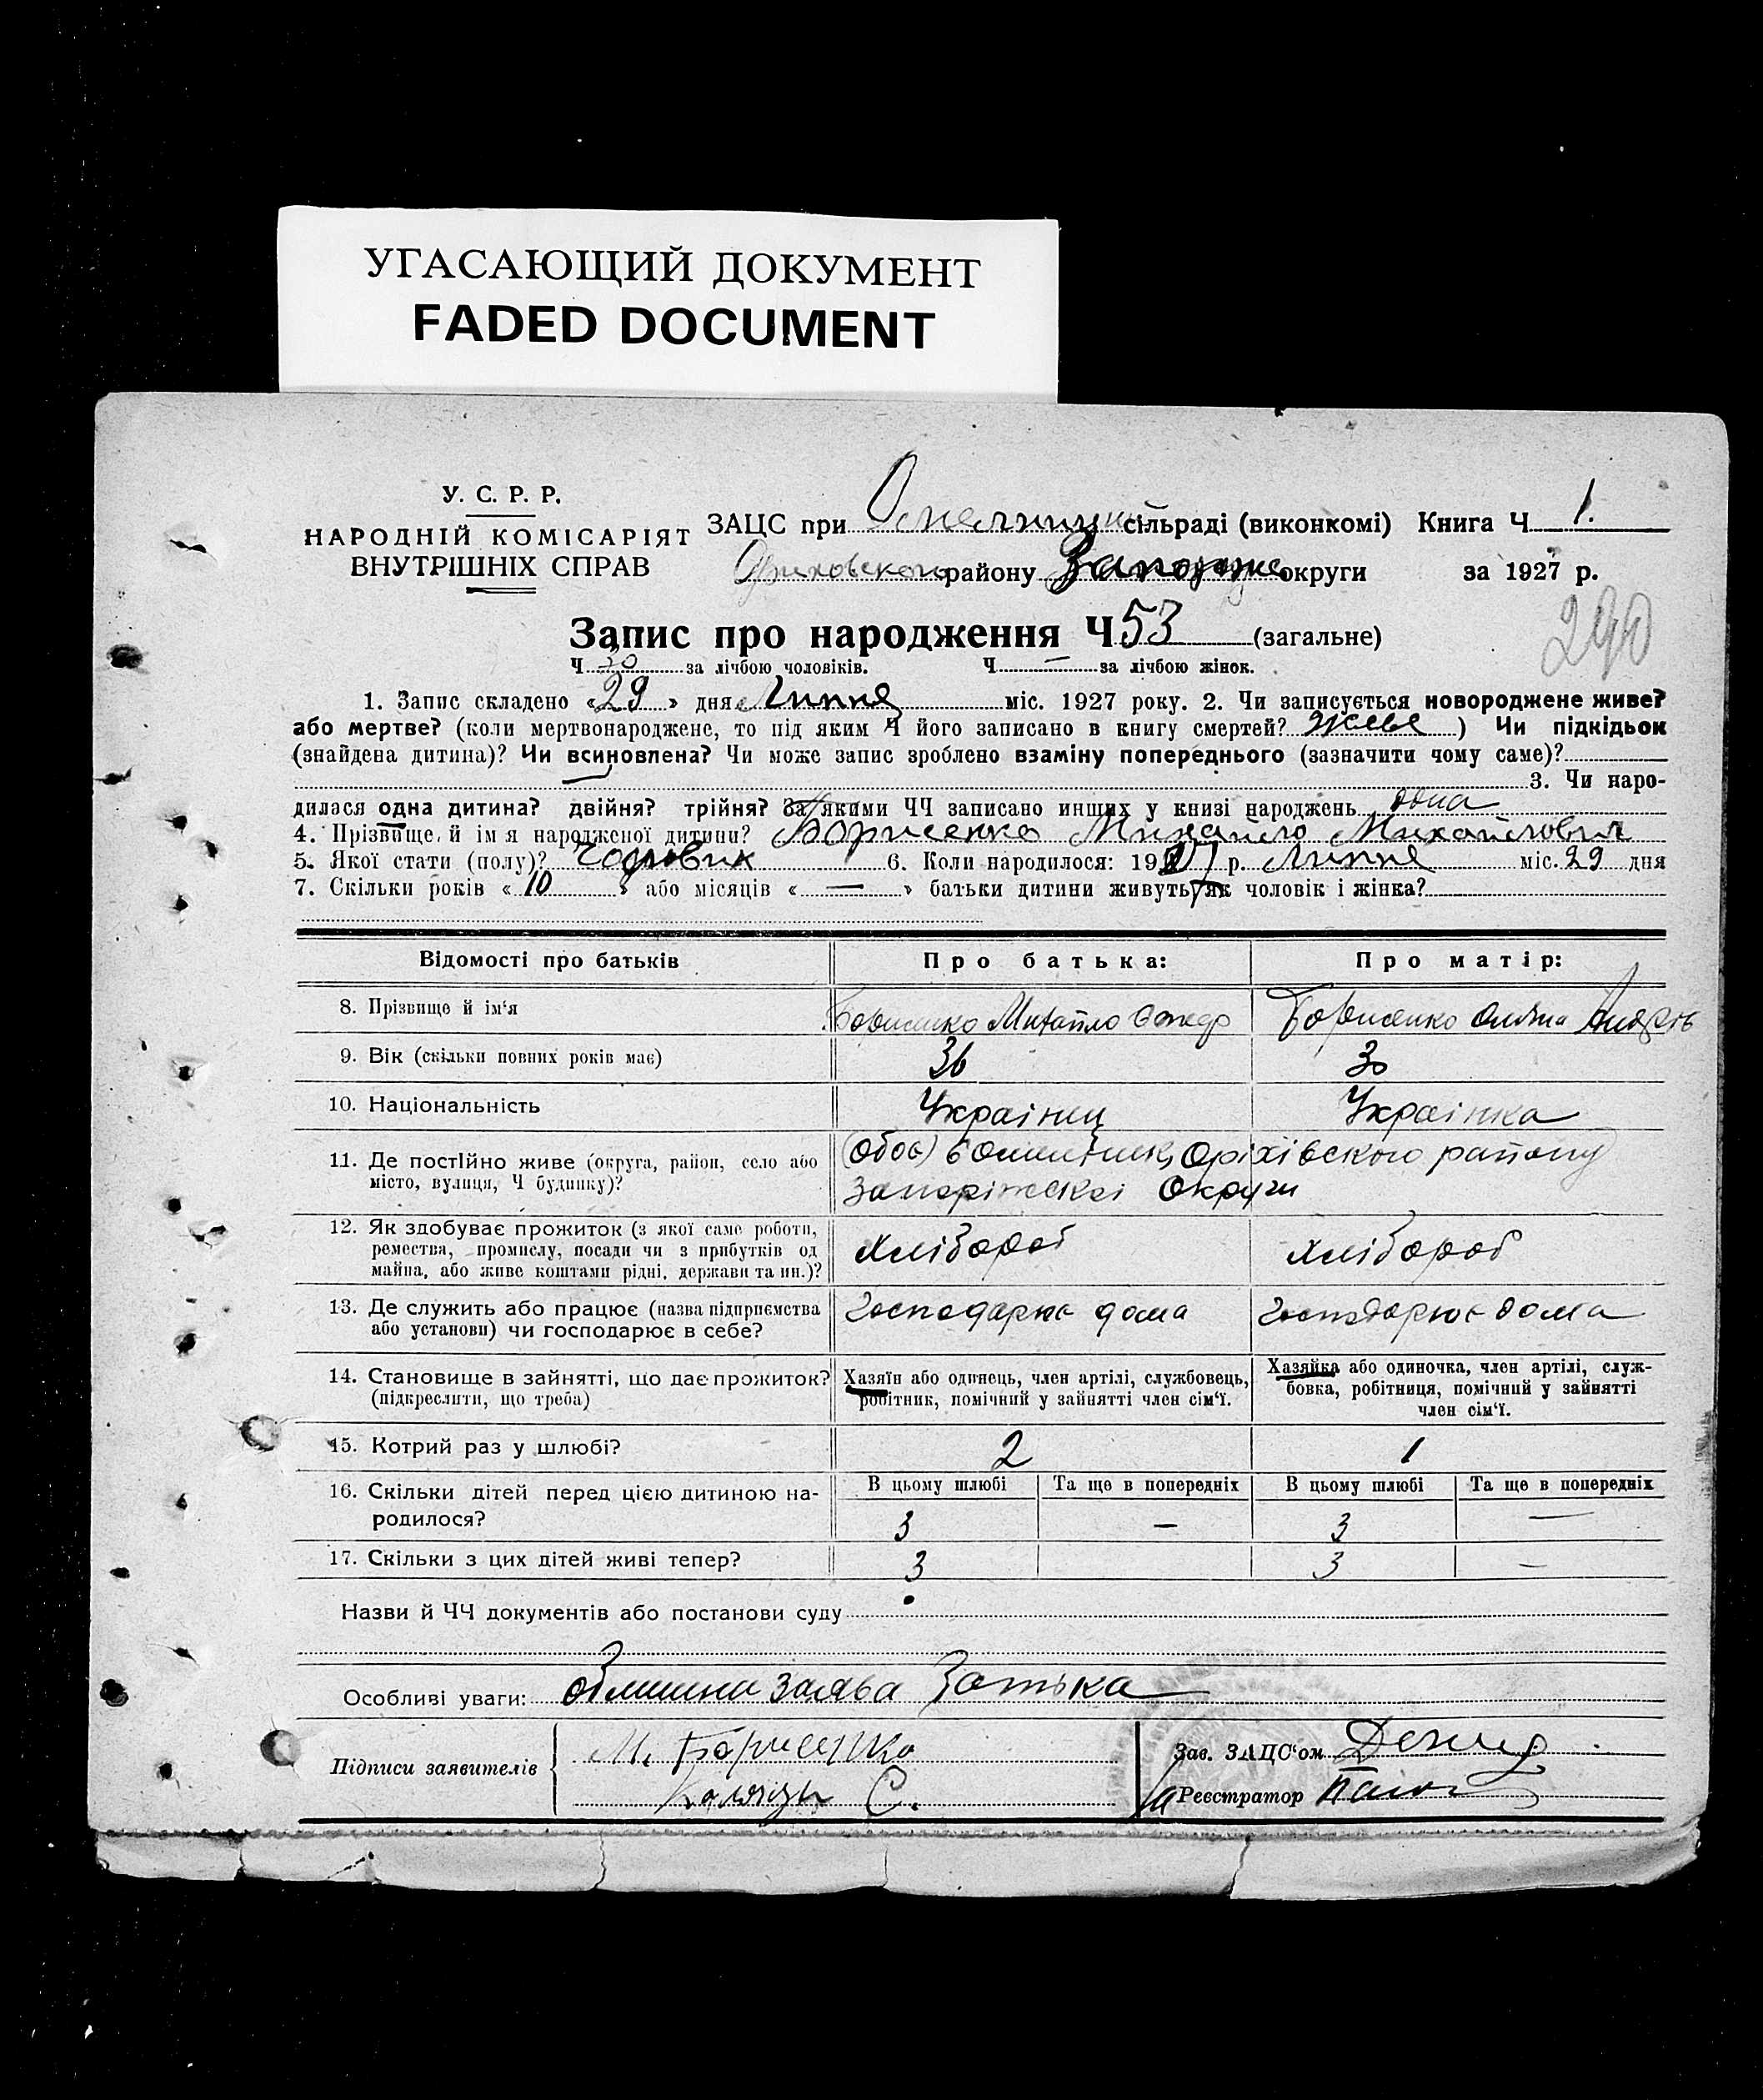 УГАСАЮЩИЙ ДОКУМЕНТ
FADED DOCUMENT
У. С. Р. Р.
НАРОДНІЙ КОМІСАРІЯТ
ВНУТРІШНІХ СПРАВ
ЗАЦС при сільраді (виконкомі) Книга Ч 1.
району округи за 1927 р.
290
Запис про народження Ч 53 (загальне)
Ч 30 за лічбою чоловіків. Ч — за лічбою жінок.
1. Запис складено «29» дня Липня міс. 1927 року. 2. Чи записується новороджене живе?
або мертве? (коли мертвонароджене, то під яким Ч його записано в книгу смертей? живе ) Чи підкідьок
(знайдена дитина)? Чи всиновлена? Чи може запис зроблено взаміну попереднього (зазначити чому саме)?
3. Чи наро-
дилася одна дитина? двійня? трійня? За якими ЧЧ записано инших у книзі народжень одна
4. Прізвище й ім я народженої дитини? Борисенко Михайло Михайлович
5. Якої стати (полу)? чоловик 6. Коли народилося: 1927 р. Липня міс. 29 дня
7. Скільки років «10» або місяців «—» батьки дитини живуть як чоловік і жінка?
Відомості про батьків Про батька: Про матір:
8. Прізвище й ім'я Борисенко Михайло Борисенко Андрів
9. Вік (скільки повних років має) 36 30
10. Національність Украінец Украінка
11. Де постійно живе (округа, район, село або місто, вулиця, Ч будинку)? (обоє) Оріхівского району
Запоріжскоі Округи
12. Як здобуває прожиток (з якої саме роботи,
ремества, промислу, посади чи з прибутків од
майна, або живе коштами рідні, держави та ин.)? Хлібороб Хлібороб
13. Де служить або працює (назва підприємства
або установи) чи господарює в себе? Господарює дома Господарює дома
14. Становище в зайнятті, що дає прожиток?
(підкреслити, що треба)
Хазяїн або одинець, член артілі, службовець,
робітник, помічний у зайнятті член сім'ї.
Хазяйка або одиночка, член артілі, служ-
бовка, робітниця, помічний у зайнятті
член сім'ї.
15. Котрий раз у шлюбі? 2 1
16. Скільки дітей перед цією дитиною на-
родилося?
В цьому шлюбі Та ще в попередніх В цьому шлюбі Та ще в попередніх
3 — 3 —
17. Скільки з цих дітей живі тепер? 3 3 —
Назви й ЧЧ документів або постанови суду
Особливі уваги: заява Батька
Підписи заявителів М. Борисенко
С.
Зав. ЗАЦС'ом
Реєстратор